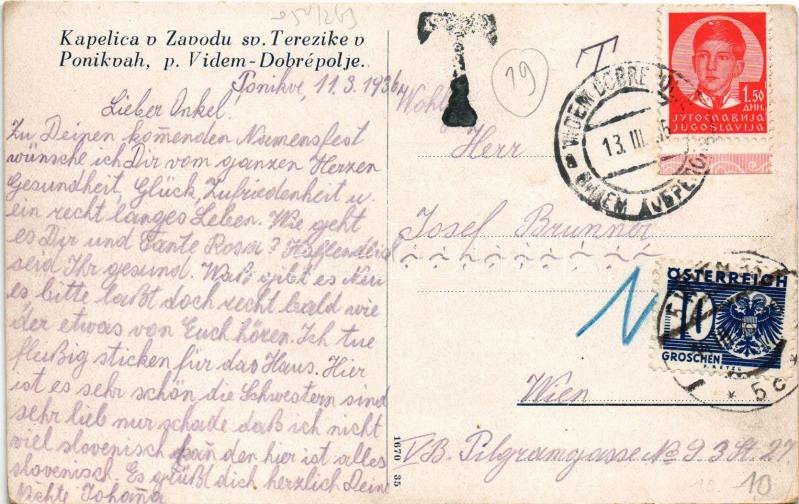 Kapelica v Zavodu sv. Terezike v
Ponikvah, p. Videm-Dobrépolje.
Ponikve, 11.3.1936
Lieber Onkel.
Zu Deinen kom̄enden Namensfest
wünsche ich Dir vom ganzen Herzen
Gesundheit, Glück, Zufriedenheit u.
ein recht langes Leben. Wie geht
es Dir und Tante Rosa? Hoffendlich
seid Ihr gesund. Was gibt es Neu
es bitte laßt doch recht bald wie
der etwas von Euch hören. Ich tue
fleußig sticken für das Haus. Hier
ist es sehr schön die Schwestern sind
sehr lieb nur schade daß ich nicht
viel slovenisch kan̄ den hier ist alles
slovenisch. Es grüßt dich herzlich Deine
Nichte Johana
T
19
T
VIDEM DOBREPOLJE
13. III. 36
ВИДЕМ ДОБРЕПОЉЕ
1.50
ДИН.
ЈУГОСЛАВИЈА
JUGOSLAVIJA
Wohl
Herr
Josef Brunner
ÖSTERREICH
10
GROSCHEN
5c
Wien
V.B. Pilgramgasse No 9 3. St. 27
10
1670 35